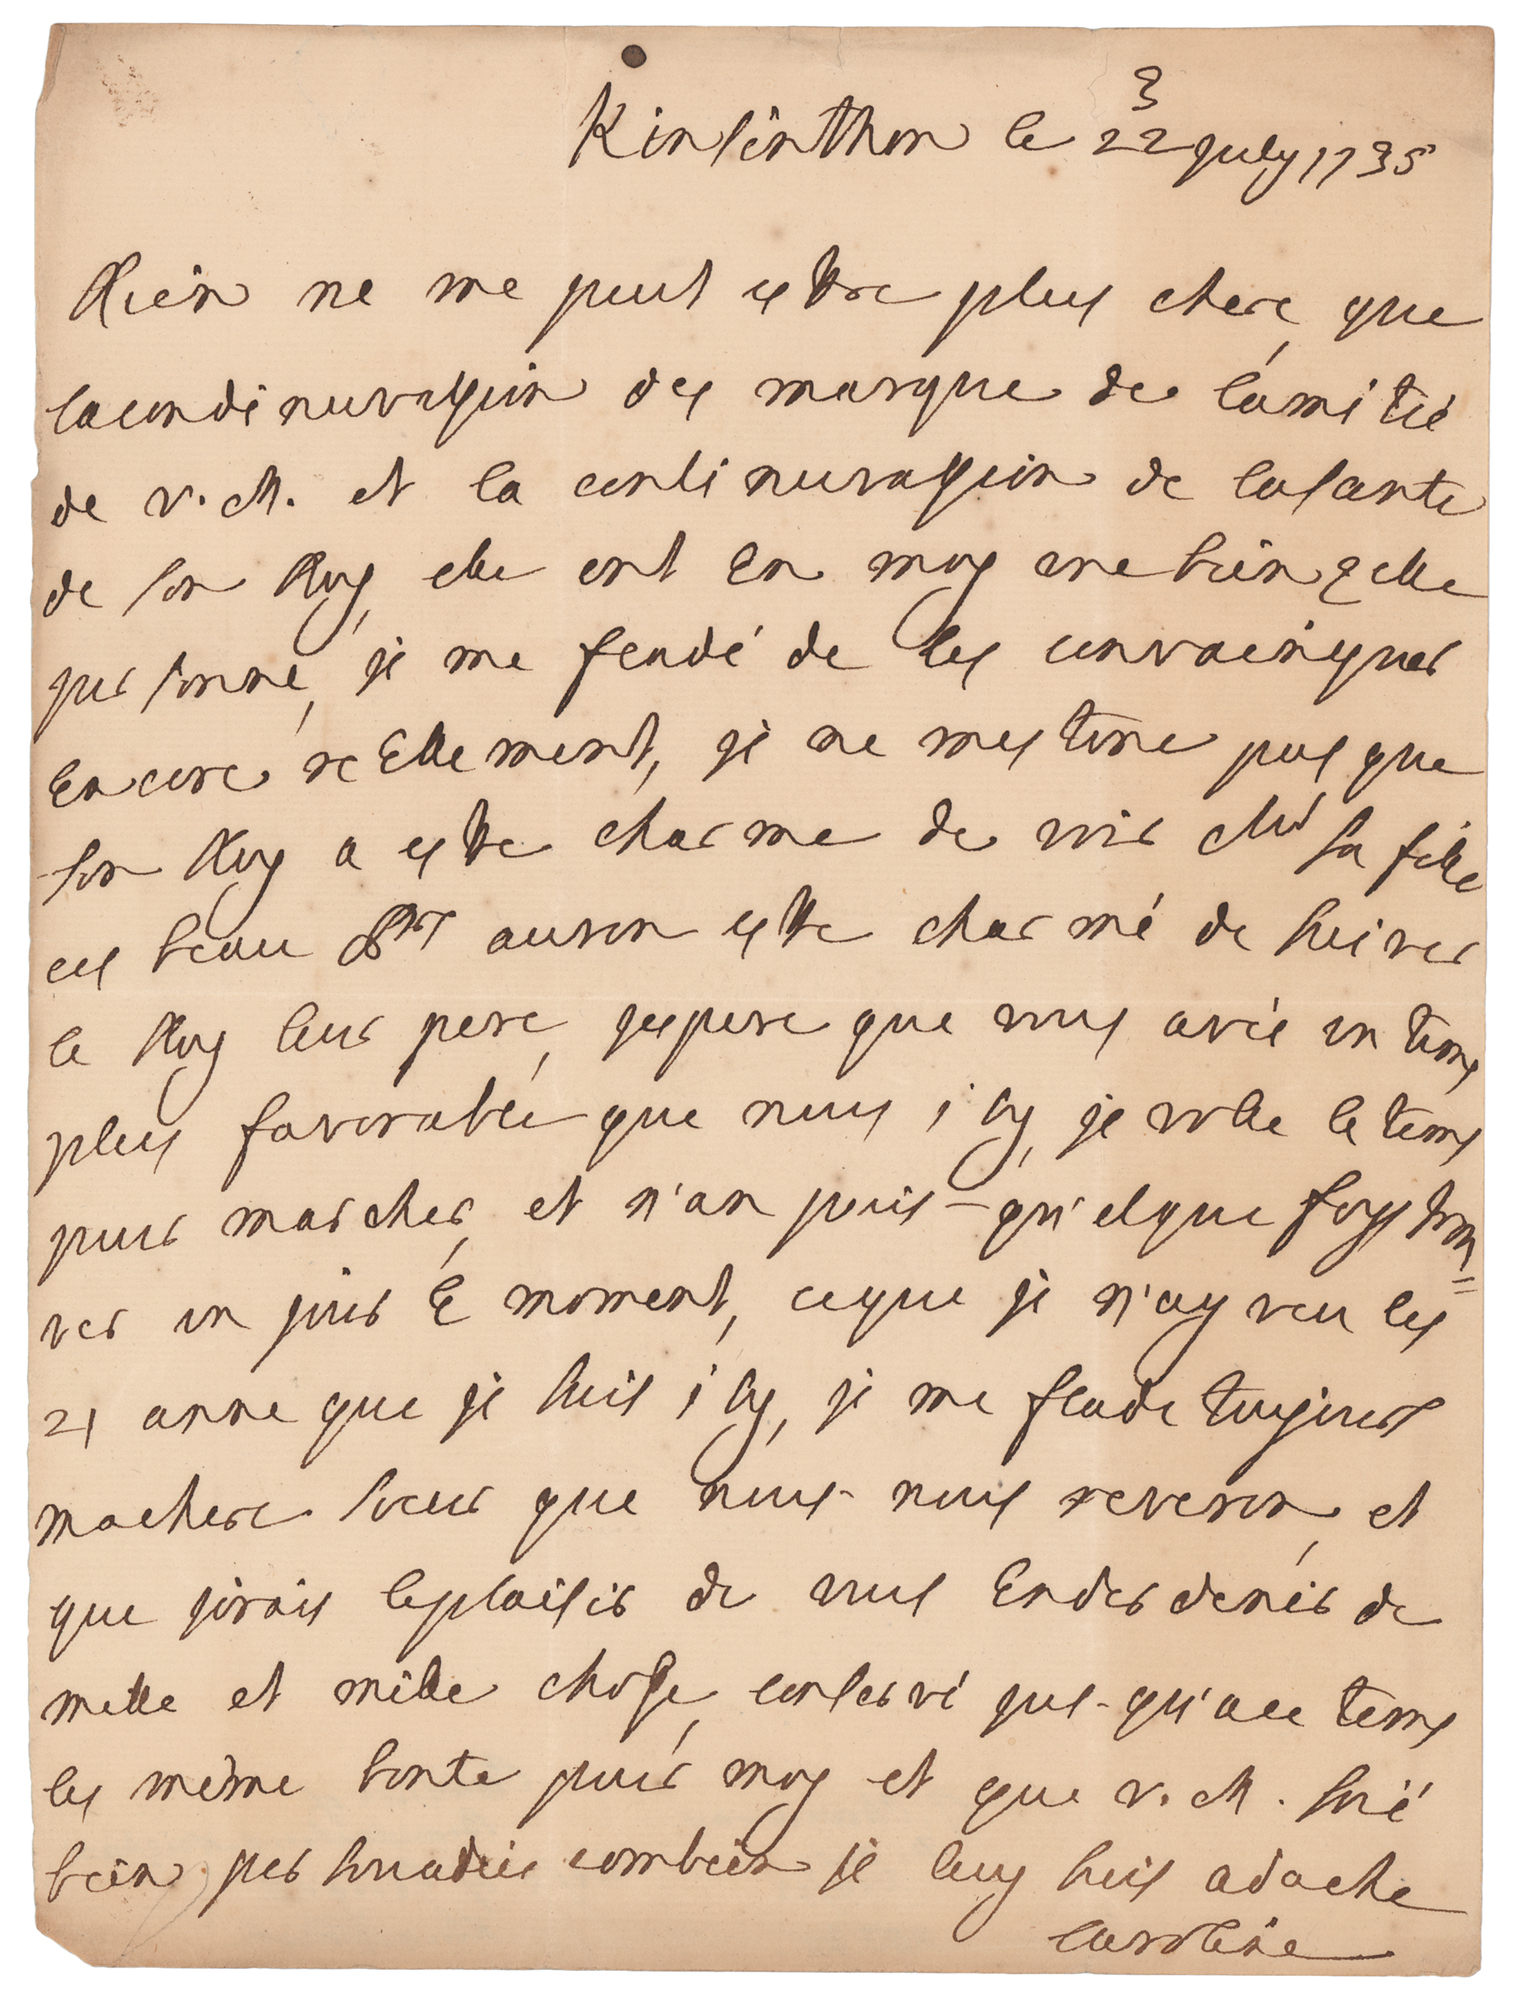 Kinsinthon le 22 july 1735
3
Rien ne me peut estre plus chere, que
lacondinuvassion des marque de l'amitié
de v. M. et la continuvassion de lasante
de son Roy, elle ont En moy une bien Zelle
personné, je me flade de les convainquer
Encore reEllement, je ne mestone pas que
son Roy a estte charme de voir Md sa fille
ces beau auron estte charmé de suiver
le Roy leur pere, jespere que vous avié un tems
plus favorablé que nous isy, je volle le tems
pour marcher, et n'an puis qu'elque foys trou=
ver un jour E moment, ceque je n'ay veu les
21 anne que je suis isy, je me flade toujours
machere soeur que nous nous reveron, et
que jorais leplaisir de vous Enderdenir de
melle et mille chosse, conservé jus-qu'ace tems
les mème bonte pour moy et que v. M. soié
bien persouadée combien je luy suis adache
Caroline